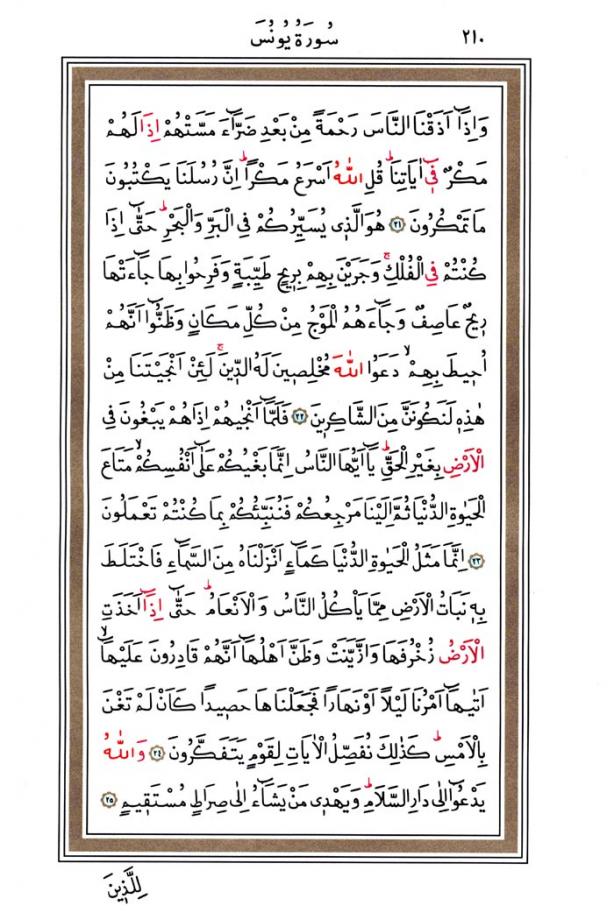 سُورَةُ يُونُسَ ٢١٠
وَاِذَٓا اَذَقْنَا النَّاسَ رَحْمَةً مِنْ بَعْدِ ضَرَّٓاءَ مَسَّتْهُمْ اِذَا لَهُمْ
مَكْرٌ فٖٓي اٰيَاتِنَاۜ قُلِ اللّٰهُ اَسْرَعُ مَكْرًاۜ اِنَّ رُسُلَنَا يَكْتُبُونَ
مَا تَمْكُرُونَ ﴿٢١﴾ هُوَ الَّذٖي يُسَيِّرُكُمْ فِي الْبَرِّ وَالْبَحْرِۜ حَتّٰٓى اِذَا
كُنْتُمْ فِي الْفُلْكِۚ وَجَرَيْنَ بِهِمْ بِرٖيحٍ طَيِّبَةٍ وَفَرِحُوا بِهَا جَٓاءَتْهَا
رٖيحٌ عَاصِفٌ وَجَٓاءَهُمُ الْمَوْجُ مِنْ كُلِّ مَكَانٍ وَظَنُّٓوا اَنَّهُمْ
اُحٖيطَ بِهِمْۙ دَعَوُا اللّٰهَ مُخْلِصٖينَ لَهُ الدّٖينَۚ لَئِنْ اَنْجَيْتَنَا مِنْ
هٰذِهٖ لَنَكُونَنَّ مِنَ الشَّاكِرٖينَ ﴿٢٢﴾ فَلَمَّٓا اَنْجٰيهُمْ اِذَا هُمْ يَبْغُونَ فِي
الْاَرْضِ بِغَيْرِ الْحَقِّۜ يَٓا اَيُّهَا النَّاسُ اِنَّمَا بَغْيُكُمْ عَلٰٓى اَنْفُسِكُمْۙ مَتَاعَ
الْحَيٰوةِ الدُّنْيَا ثُمَّ اِلَيْنَا مَرْجِعُكُمْ فَنُنَبِّئُكُمْ بِمَا كُنْتُمْ تَعْمَلُونَ
﴿٢٣﴾ اِنَّمَا مَثَلُ الْحَيٰوةِ الدُّنْيَا كَمَٓاءٍ اَنْزَلْنَاهُ مِنَ السَّمَٓاءِ فَاخْتَلَطَ
بِهٖ نَبَاتُ الْاَرْضِ مِمَّا يَأْكُلُ النَّاسُ وَالْاَنْعَامُۜ حَتّٰٓى اِذَٓا اَخَذَتِ
الْاَرْضُ زُخْرُفَهَا وَازَّيَّنَتْ وَظَنَّ اَهْلُهَٓا اَنَّهُمْ قَادِرُونَ عَلَيْهَاۙ
اَتٰيهَٓا اَمْرُنَا لَيْلًا اَوْ نَهَارًا فَجَعَلْنَاهَا حَصٖيدًا كَاَنْ لَمْ تَغْنَ
بِالْاَمْسِۜ كَذٰلِكَ نُفَصِّلُ الْاٰيَاتِ لِقَوْمٍ يَتَفَكَّرُونَ ﴿٢٤﴾ وَاللّٰهُ
يَدْعُٓوا اِلٰى دَارِ السَّلَامِۜ وَيَهْدٖي مَنْ يَشَٓاءُ اِلٰى صِرَاطٍ مُسْتَقٖيمٍ ﴿٢٥﴾
لِلَّذٖينَ